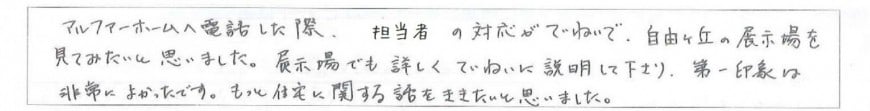 アルファーホームへ電話した際、 担当者 の対応がていねいで、自由ヶ丘の展示場を
見てみたいと思いました。展示場でも詳しくていねいに説明して下さり、第一印象は
非常によかったです。もっと住宅に関する話をききたいと思いました。